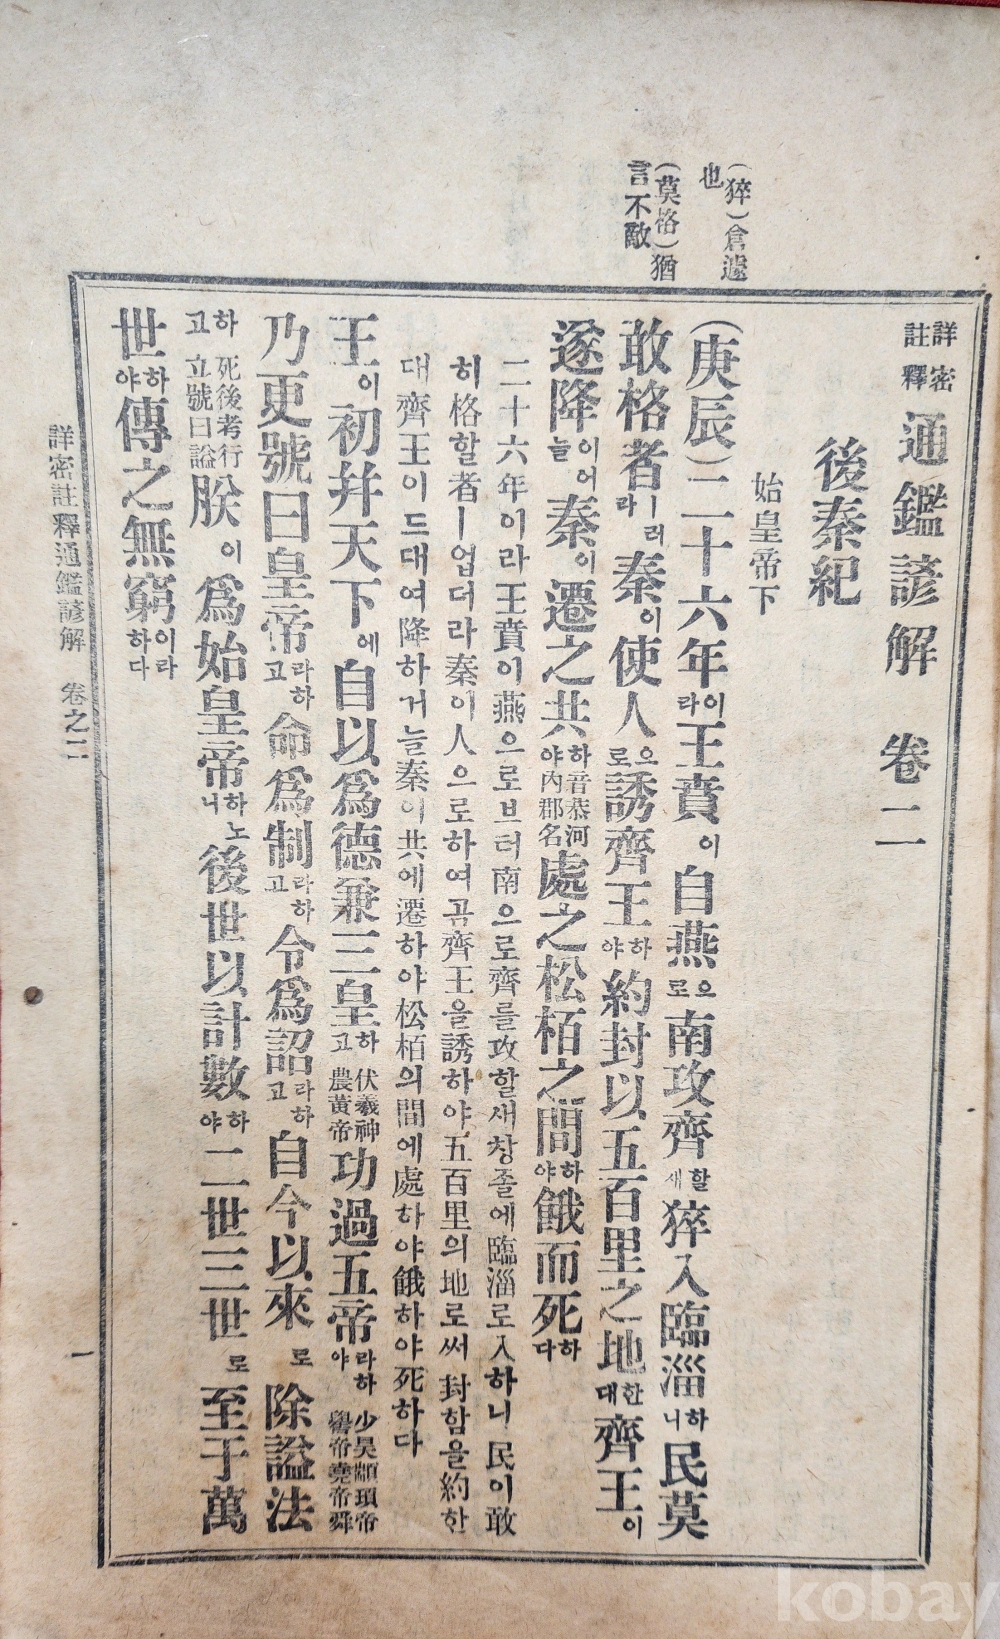 (猝)倉遽
也
(莫格)猶
言不敵
詳密
註釋 通鑑諺解 卷二
後秦紀
始皇帝下
(庚辰)二十六年이라王賁이自燕으로南攻齊할새猝入臨淄하니民莫
敢格者ㅣ러라秦이使人으로誘齊王하야約封以五百里之地한대齊王이
遂降이어늘秦이遷之共하야音恭河內郡名處之松栢之間하야餓而死하다
二十六年이라王賁이燕으로브터南으로齊를攻할새창졸에臨淄로入하니民이敢
히格할者ㅣ업더라秦이人으로하여곰齊王을誘하야五百里의地로써封함을約한
대齊王이드대여降하거늘秦이共에遷하야松栢의間에處하야餓하야死하다
王이初幷天下에自以爲德兼三皇하고伏羲神農黃帝功過五帝라하야少昊顓頊帝嚳帝堯帝舜
乃更號曰皇帝라하고命爲制라하고令爲詔라하고自今以來로除諡法
하고死後考行立號曰諡朕이爲始皇帝하노니後世以計數하야二世三世로至于萬
世하야傳之無窮이라하다
詳密註釋通鑑諺解 卷之二
一
kobay